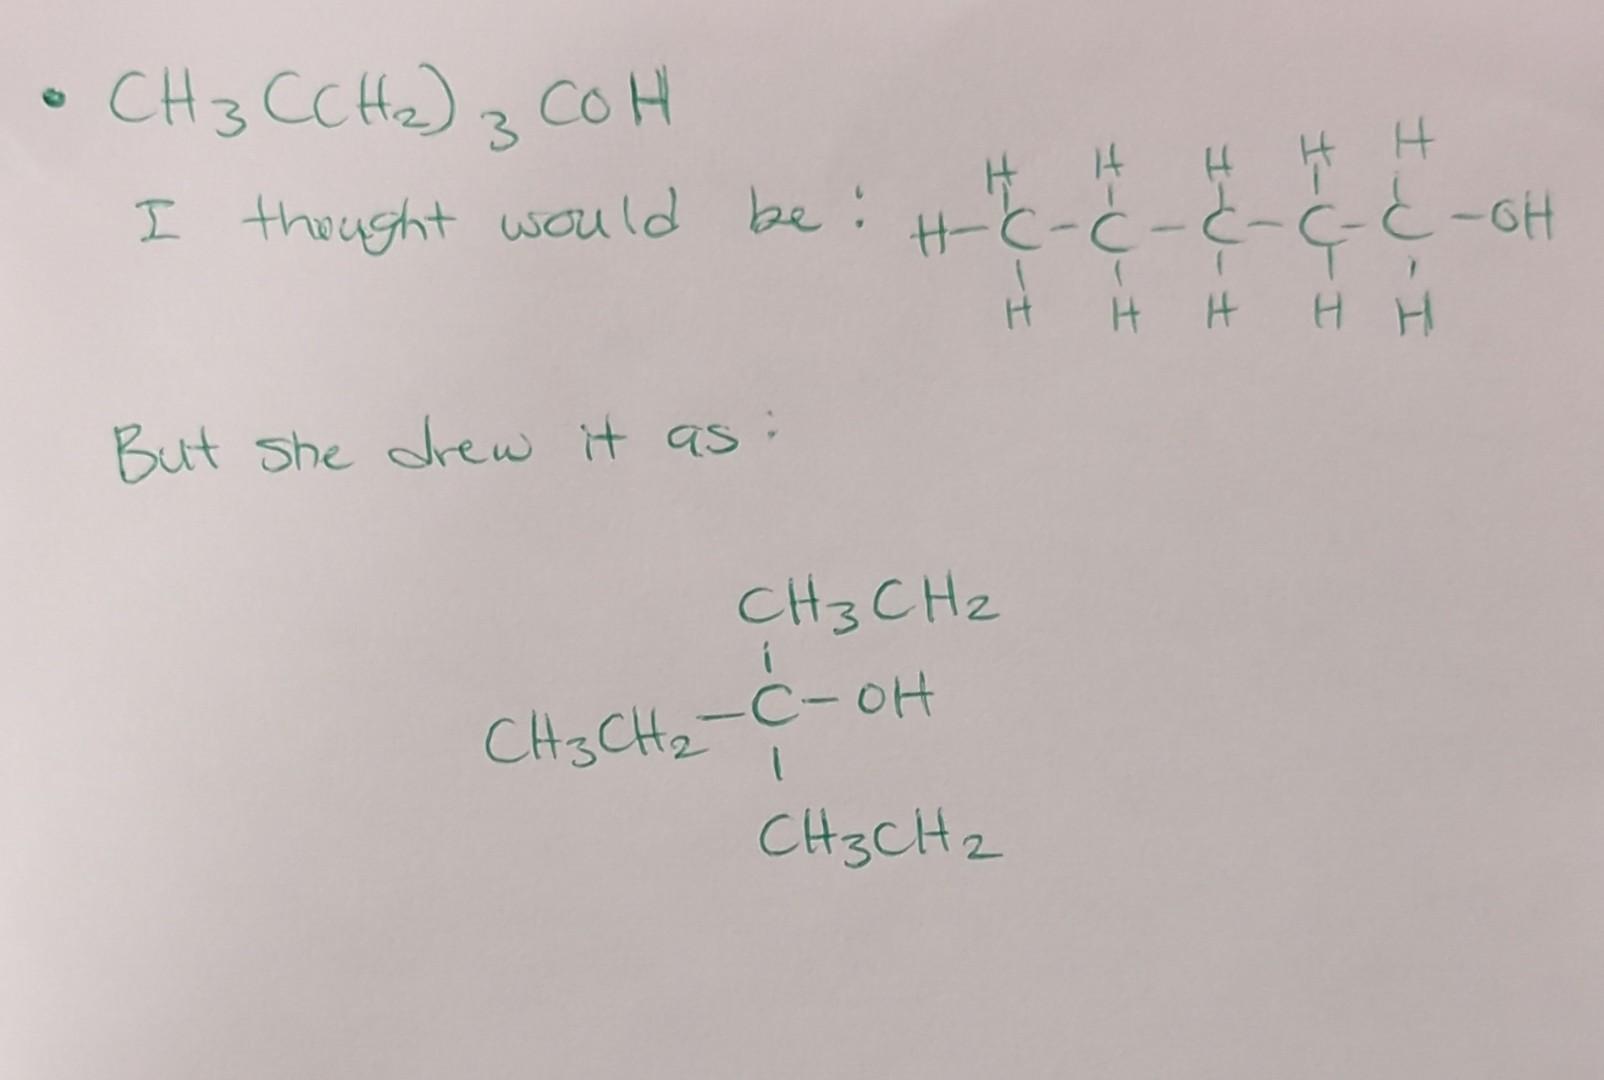 • CH3C(CH2)3COH
I thought would be:
H H H H H
H-C-C-C-C-C-OH
H H H H H
But she drew it as:
CH3CH2
CH3CH2-C-OH
CH3CH2